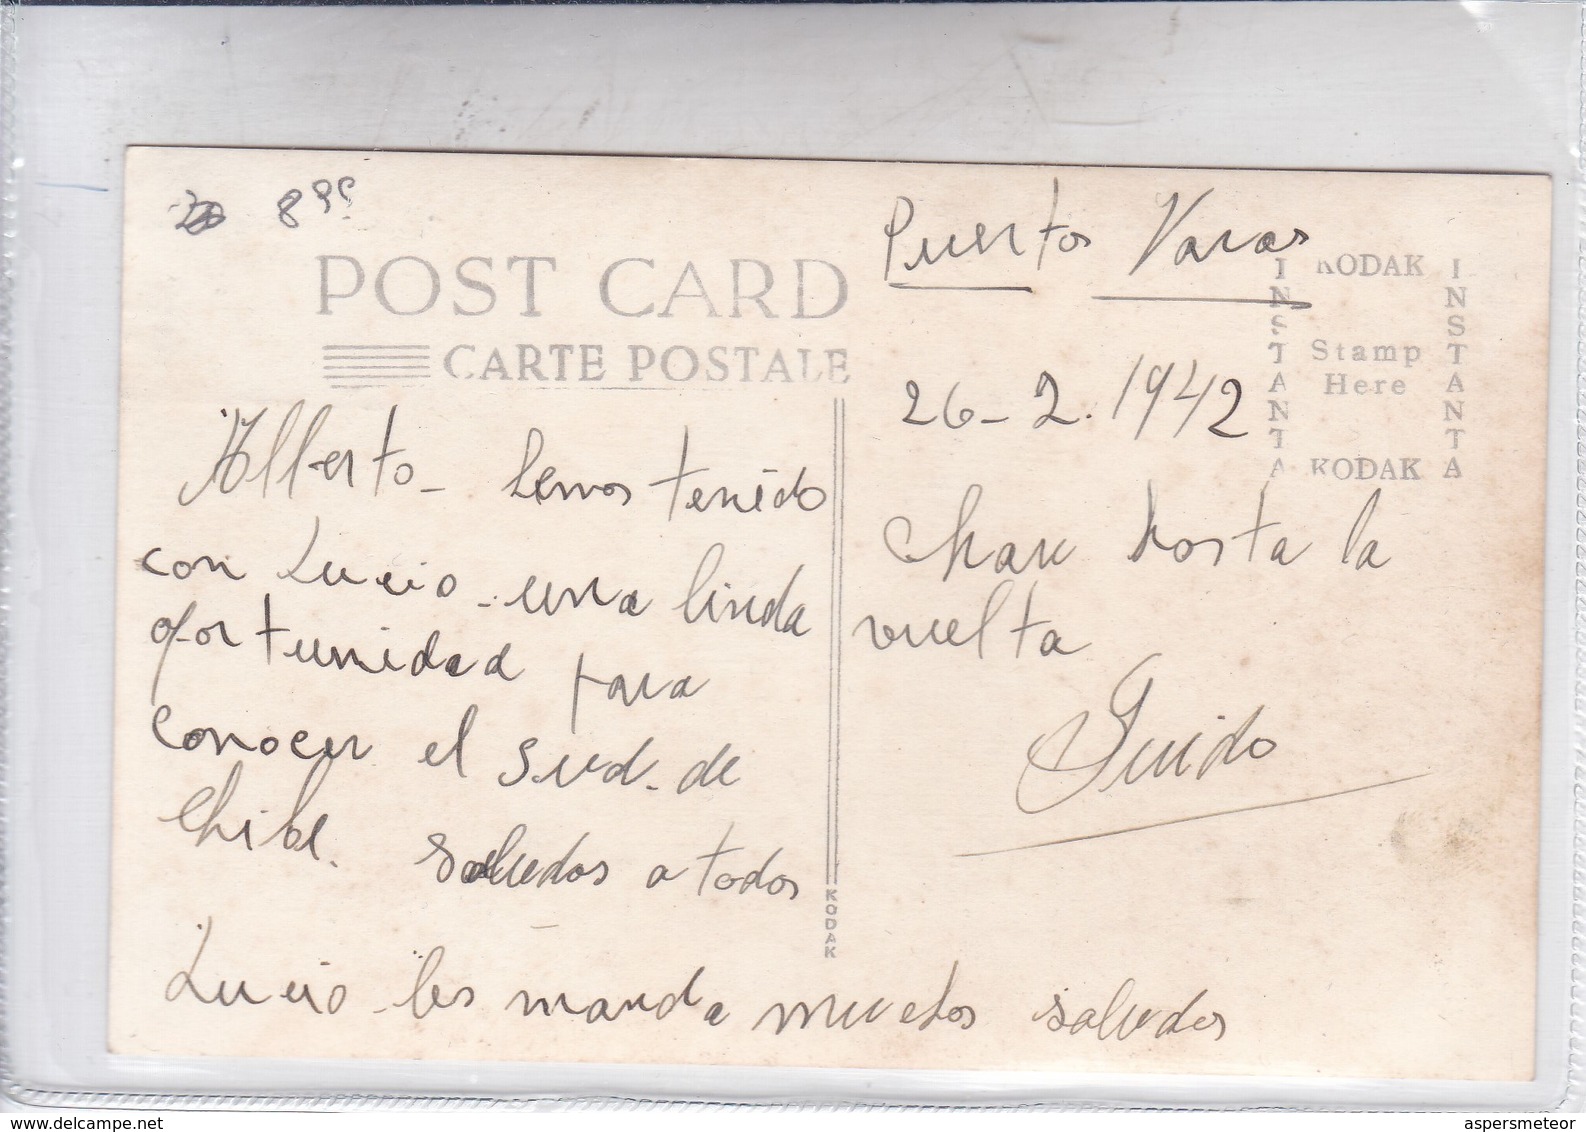 8⁹⁹
POST CARD
CARTE POSTALE
Alberto - hemos tenido
con Lucio - una linda
oportunidad para
conocer el Sud. de
Chile. Saludos a todos
Lucio les manda muchos saludos
Puerto Varas
26-2.1942
chau hasta la
vuelta
Guido
KODAK
Stamp
Here
KODAK
INSTANTA
INSTANTA
KODAK
www.delcampe.net
aspersmeteor